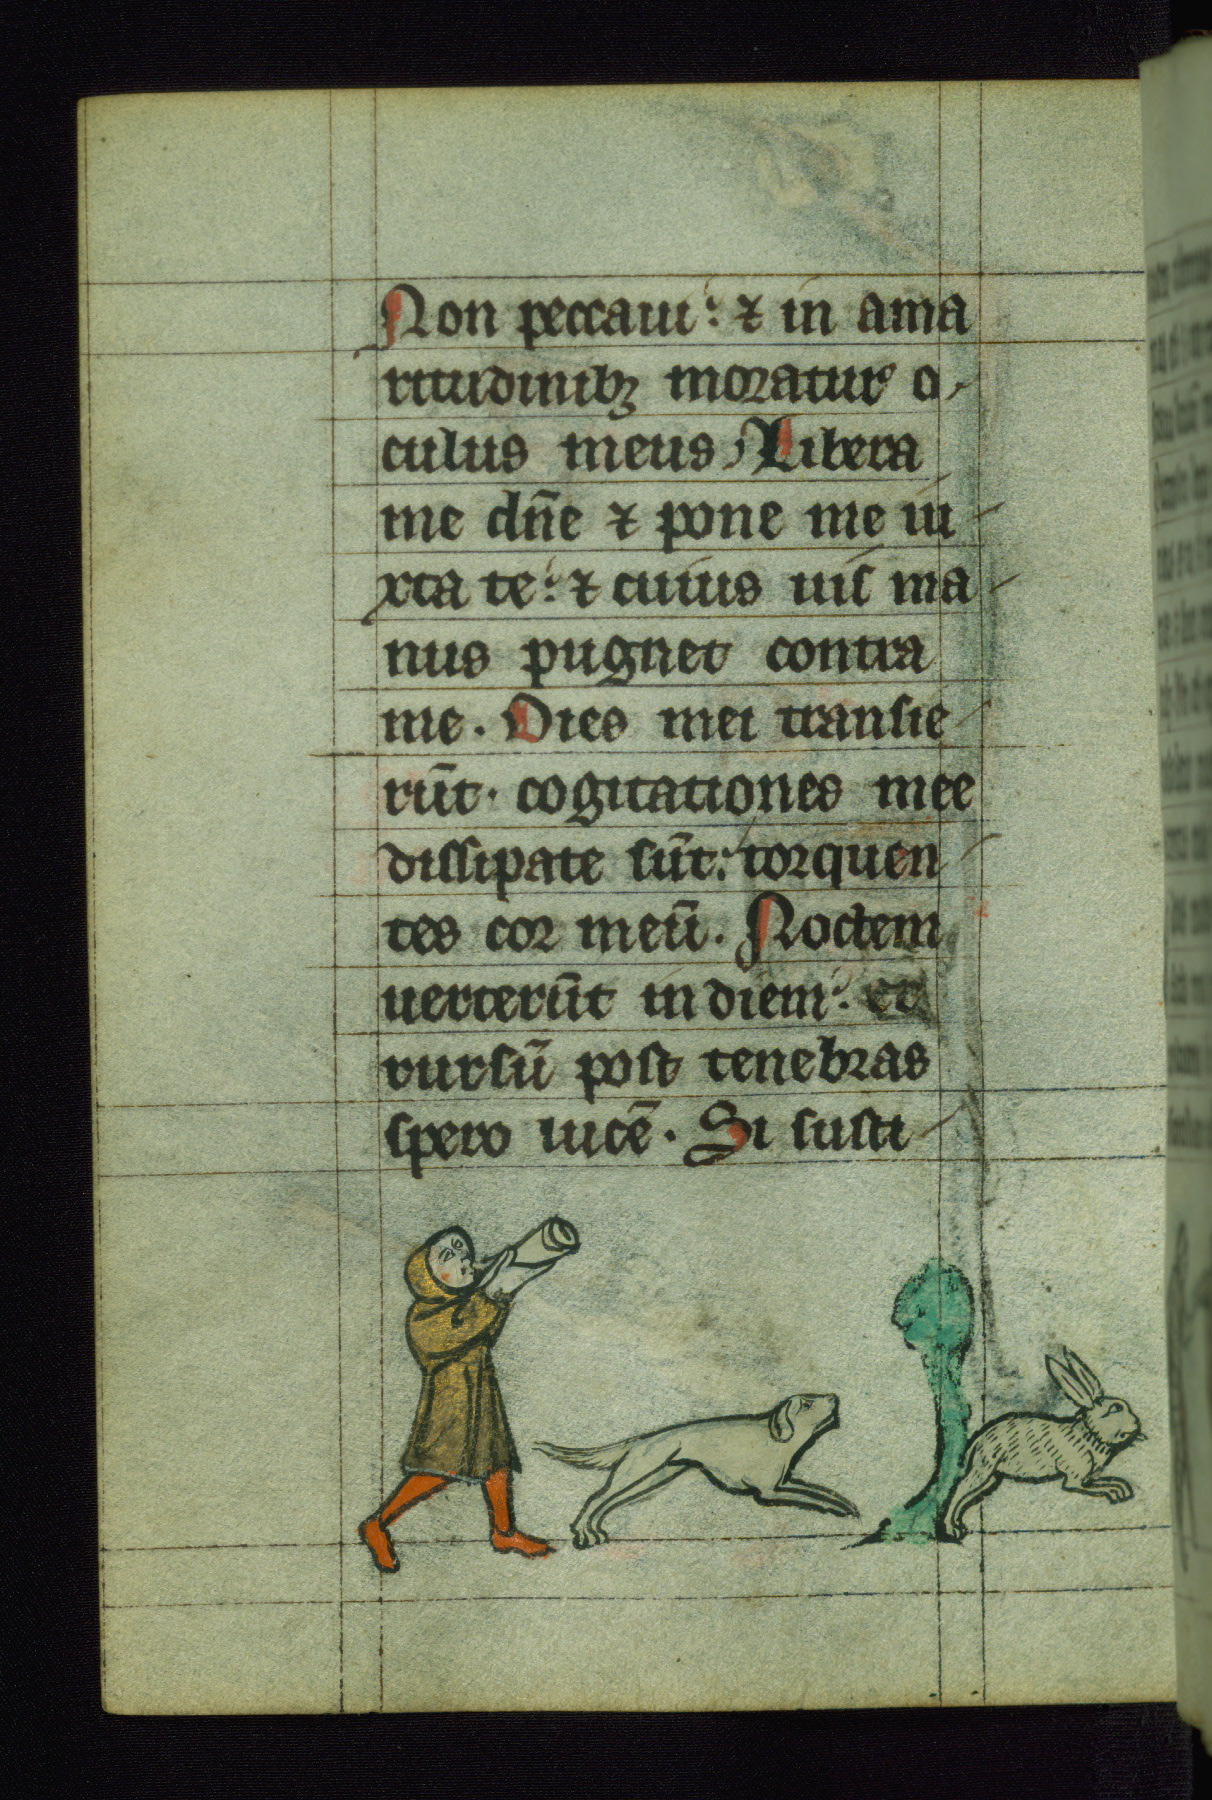 Non peccaui: ⁊ in ama
ritudinibꝫ moratur o
culus meus, Libera
me dn̄e ⁊ pone me iu
xta te: ⁊ cuius uis ma
nus pugnet contra
me. Dies mei transie
rūt. cogitationes mee
dissipate sūt: torquen
tes cor meū. Noctem
uerterūt in diem: et
rursū post tenebras
spero lucē. Si susti